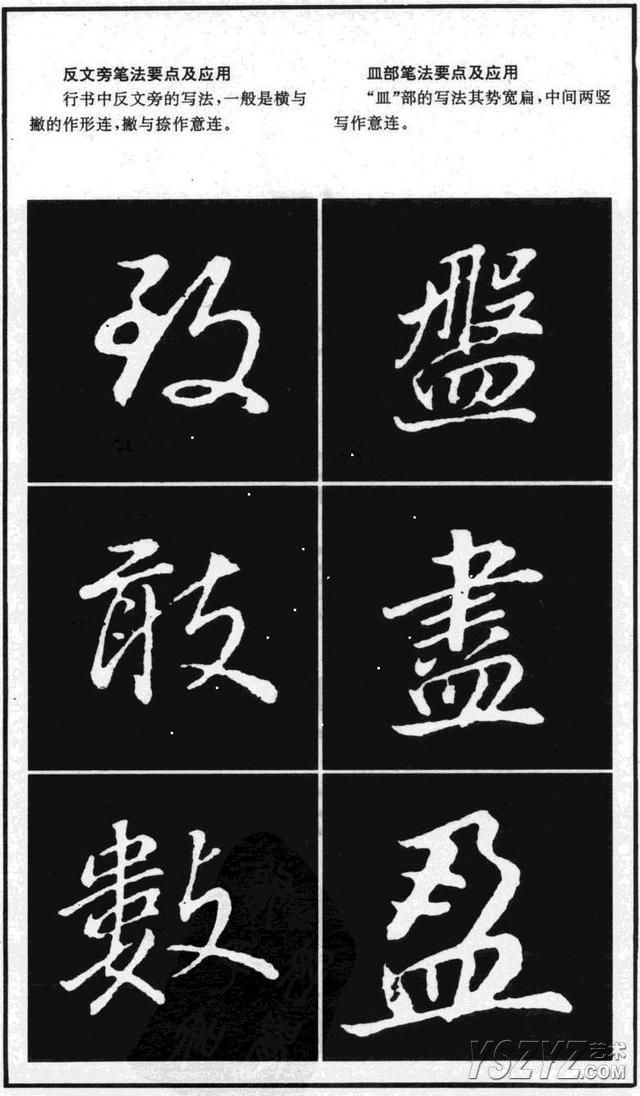 反文旁笔法要点及应用
行书中反文旁的写法，一般是横与
撇的作形连，撇与捺作意连。
皿部笔法要点及应用
“皿”部的写法其势宽扁，中间两竖
写作意连。
致
敢
數
盤
盡
盈
YSZYZ艺术
.COM